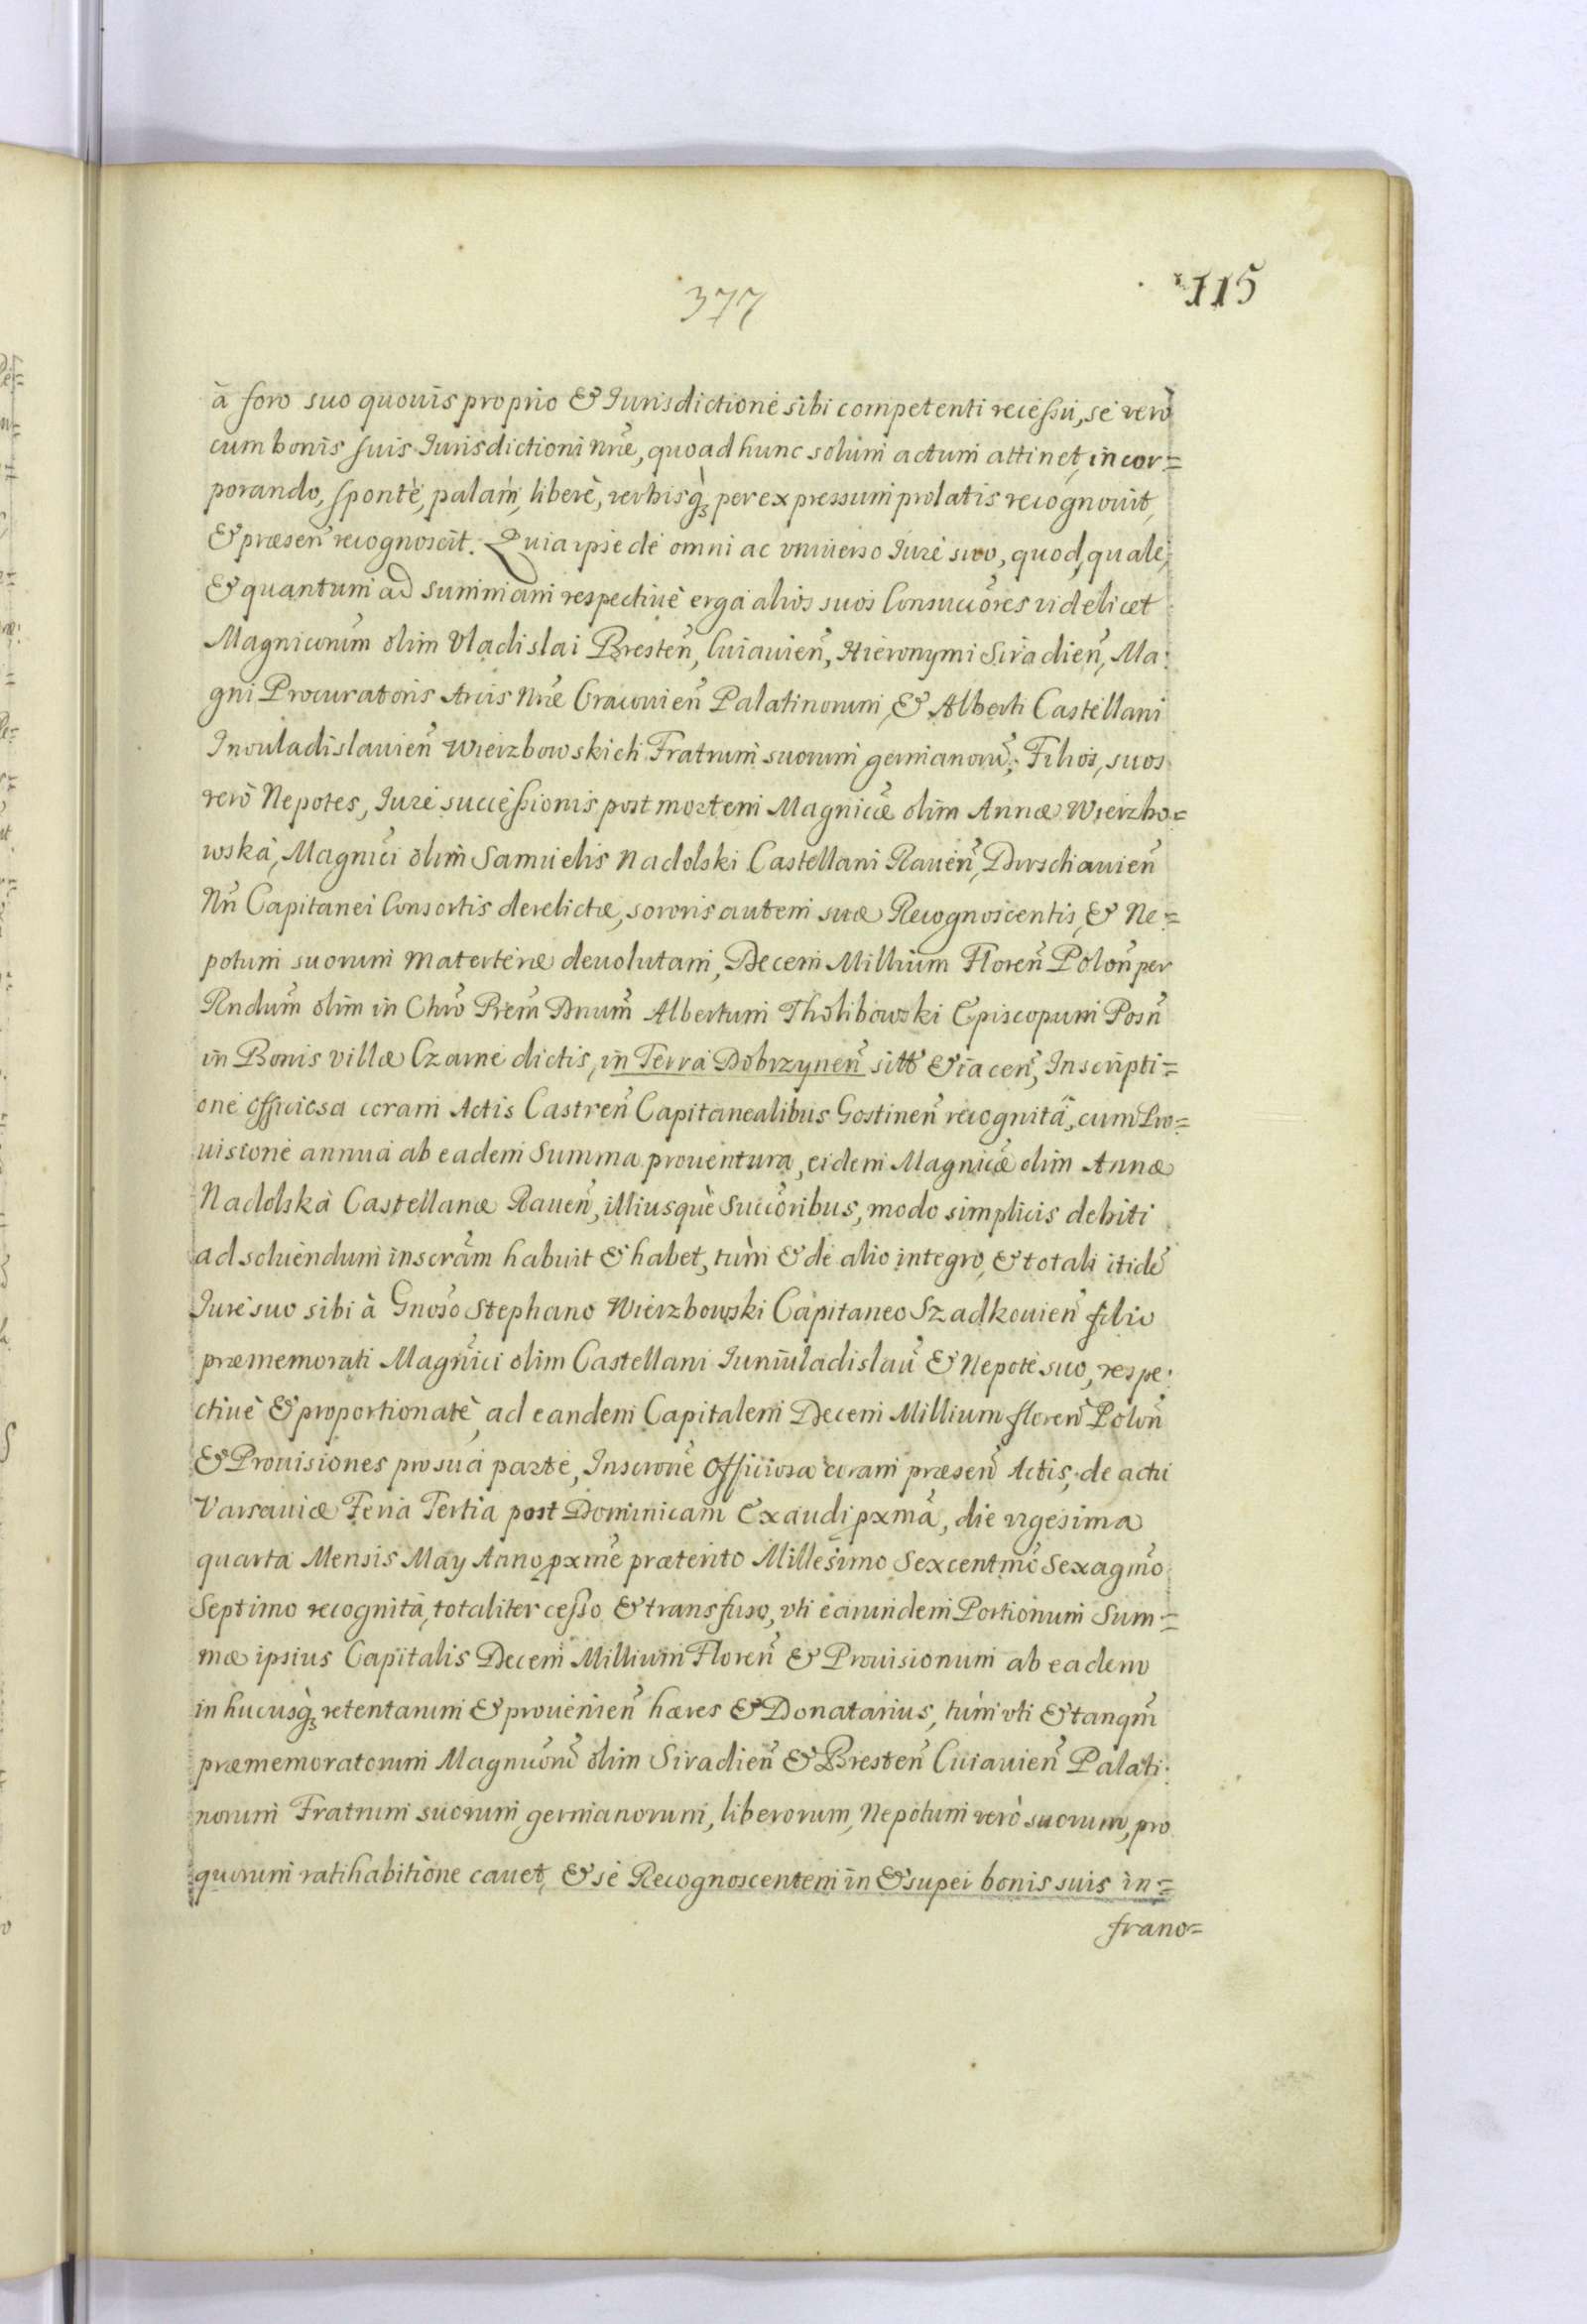 377
115
à foro suo quouis proprio & Jurisdictione sibi competenti recessu, se verò
cum bonis suis Jurisdictioni Nrae, quoad hunc solum actum attinet, incor=
porando, sponte, palam, libere, verbisq̀ꝫ per expressum prolatis recognovit,
& praesen̄ recognoscit. Quia ipse de omni ac vniuerso Jure suo, quod, quale,
& quantum ad Summam respectiuè erga alios suos Consucc̄ores videlicet
Magnicorum̄ olim Vladislai Bresten̄, Cuiauien̄, Hieronymi Siradien̄, Ma:
gni Procuratoris Arcis Nrae Cracouien̄ Palatinorum, & Alberti Castellani
Inouladislauien̄ Wierzbowskich Fratrum suorum germanorū, Filios, suos
verò Nepotes, Jure successionis post mortem Magnicae olim Annae Wierzbo=
wska, Magnici olim Samuelis Nadolski Castellani Rauen̄, Dirschauien̄
Nn̄ Capitanei Consortis derelictae, sororis autem suae Recognoscentis, & Ne=
potum suorum materterae deuolutam, Decem Millium Floren̄ Polon̄ per
Rndum̄ olim in Chrō Prem̄ Dnum̄ Albertum Tholibowski Episcopum Posn̄
in Bonis villae Czarne dictis, in Terra Dobrzynen̄ sitt̄ & iacen̄, Inscripti=
one officiosa coram Actis Castren̄ Capitanealibus Gostinen̄ recognitâ, cum Pro=
uisione annua ab eadem Summa prouentura, eidem Magnicae olim Annae
Nadolska Castellanae Rauen̄, illiusquè Succ̄oribus, modo simplicis debiti
ad soluendum inscrām habuit & habet, tùm & de alio integro, & totali itidē
Jure suo sibi à Gnoso Stephano Wierzbowski Capitaneo Szadkouien̄ filio
praememorati Magnici olim Castellani Juniuladislau̅ & Nepote suo, respe:
ctiuè & proportionatè, ad eandem Capitalem Decem Millium floren̄ Polon̄
& Prouisiones pro sua parte, Inscrone Officiosa coram praesen̄ Actis, de actu
Varsauiae Feria Tertia post Dominicam Exaudi pxmā, die vigesima
quarta Mensis May Anno pxme praeterito Millesimo Sexcentmo Sexagmo
Septimo recognita, totaliter cesso & transfuso, vti earundem Portionum Sum=
mae ipsius Capitalis Decem Millium Floren̄ & Prouisionum ab eadem
in hucusq̀ꝫ retentarum & prouenien̄ haeres & Donatarius, tùm vti & tanqm̄
praememoratorum Magnicorū olim Siradien̄ & Bresten̄ Cuiauien̄ Palati:
norum Fratrum suorum germanorum, liberorum, Nepotum verò suorum, pro
quorum ratihabitione cauet, & se Recognoscentem in & super bonis suis in=
frano=